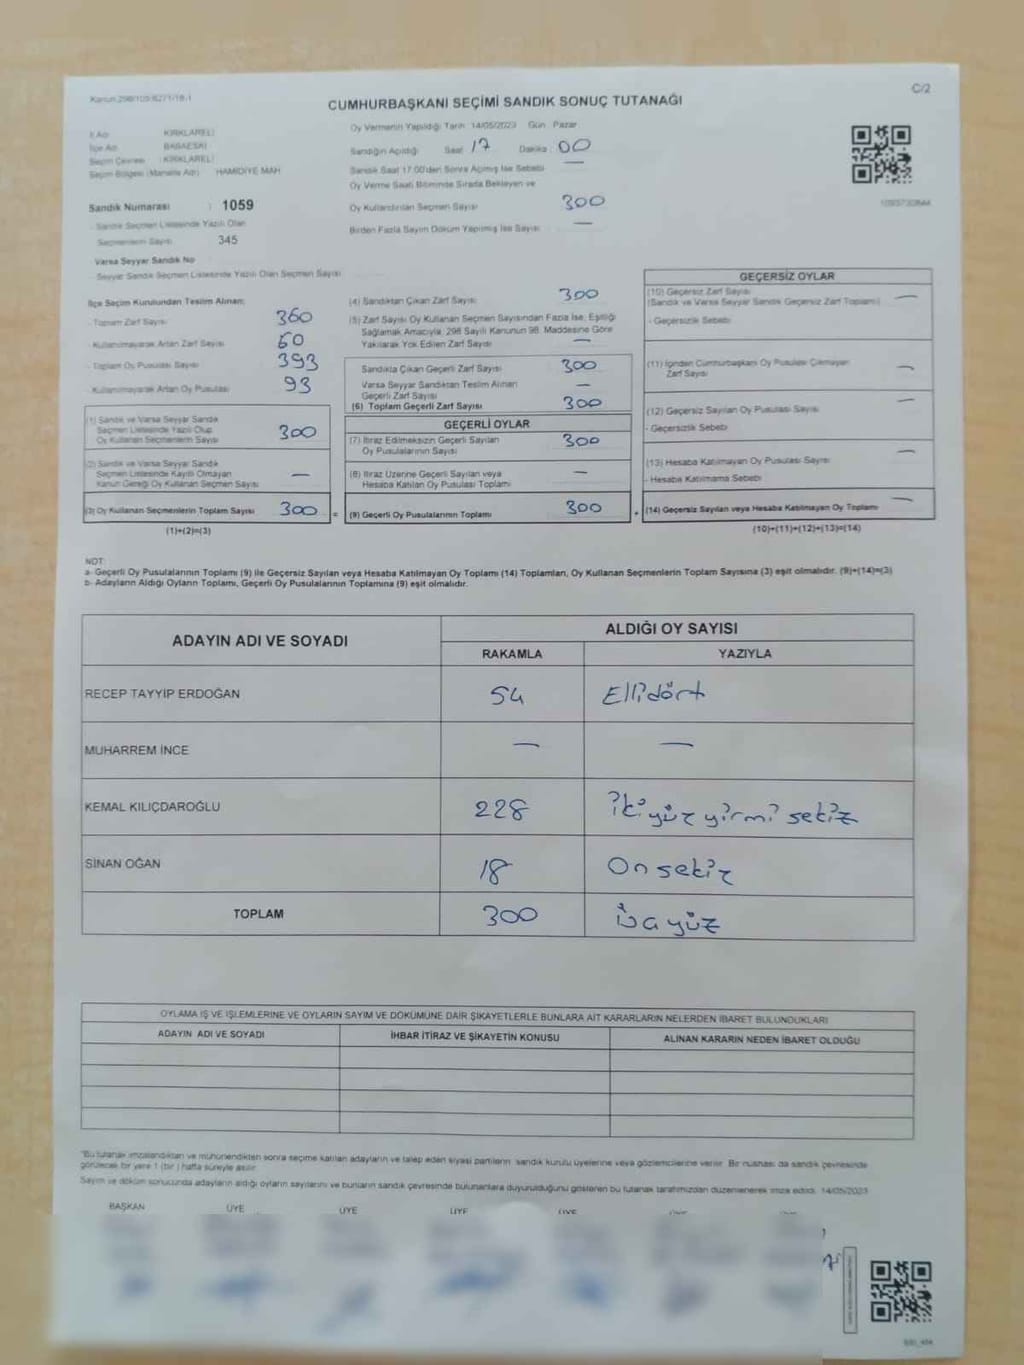 Kanun:298/105/6271/18-1
C/2
CUMHURBAŞKANI SEÇİMİ SANDIK SONUÇ TUTANAĞI
İl Adı : KIRKLARELİ
İlçe Adı : BABAESKİ
Seçim Çevresi : KIRKLARELİ
Seçim Bölgesi (Mahalle Adı) : HAMİDİYE MAH
Sandık Numarası : 1059
- Sandık Seçmen Listesinde Yazılı Olan
Seçmenlerin Sayısı 345
Varsa Seyyar Sandık No
- Seyyar Sandık Seçmen Listesinde Yazılı Olan Seçmen Sayısı
Oy Vermenin Yapıldığı Tarih 14/05/2023 Gün: Pazar
Sandığın Açıldığı Saat 17 Dakika: 00
Sandık Saat 17.00'den Sonra Açılmış İse Sebebi —
Oy Verme Saati Bitiminde Sırada Bekleyen ve
Oy Kullandırılan Seçmen Sayısı 300
Birden Fazla Sayım Döküm Yapılmış İse Sayısı —
İlçe Seçim Kurulundan Teslim Alınan:
- Toplam Zarf Sayısı 360
- Kullanılmayarak Artan Zarf Sayısı 60
- Toplam Oy Pusulası Sayısı 393
- Kullanılmayarak Artan Oy Pusulası 93
(1) Sandık ve Varsa Seyyar Sandık
Seçmen Listesinde Yazılı Olup
Oy Kullanan Seçmenlerin Sayısı 300
(2) Sandık ve Varsa Seyyar Sandık
Seçmen Listesinde Kayıtlı Olmayan
Kanun Gereği Oy Kullanan Seçmen Sayısı —
(3) Oy Kullanan Seçmenlerin Toplam Sayısı 300 =
(1)+(2)=(3)
(4) Sandıktan Çıkan Zarf Sayısı 300
(5) Zarf Sayısı Oy Kullanan Seçmen Sayısından Fazla İse, Eşitliği
Sağlamak Amacıyla, 298 Sayılı Kanunun 98. Maddesine Göre
Yakılarak Yok Edilen Zarf Sayısı —
Sandıkta Çıkan Geçerli Zarf Sayısı 300
Varsa Seyyar Sandıktan Teslim Alınan
Geçerli Zarf Sayısı —
(6) Toplam Geçerli Zarf Sayısı 300
GEÇERLİ OYLAR
(7) İtiraz Edilmeksizin Geçerli Sayılan
Oy Pusulalarının Sayısı 300
(8) İtiraz Üzerine Geçerli Sayılan veya
Hesaba Katılan Oy Pusulası Toplamı —
(9) Geçerli Oy Pusulalarının Toplamı 300 +
GEÇERSİZ OYLAR
(10) Geçersiz Zarf Sayısı
(Sandık ve Varsa Seyyar Sandık Geçersiz Zarf Toplamı) —
- Geçersizlik Sebebi
(11) İçinden Cumhurbaşkanı Oy Pusulası Çıkmayan
Zarf Sayısı —
(12) Geçersiz Sayılan Oy Pusulası Sayısı —
- Geçersizlik Sebebi
(13) Hesaba Katılmayan Oy Pusulası Sayısı —
- Hesaba Katılmama Sebebi
(14) Geçersiz Sayılan veya Hesaba Katılmayan Oy Toplamı —
(10)+(11)+(12)+(13)=(14)
NOT:
a- Geçerli Oy Pusulalarının Toplamı (9) ile Geçersiz Sayılan veya Hesaba Katılmayan Oy Toplamı (14) Toplamları, Oy Kullanan Seçmenlerin Toplam Sayısına (3) eşit olmalıdır. (9)+(14)=(3)
b- Adayların Aldığı Oyların Toplamı, Geçerli Oy Pusulalarının Toplamına (9) eşit olmalıdır.
ADAYIN ADI VE SOYADI
ALDIĞI OY SAYISI
RAKAMLA YAZIYLA
RECEP TAYYİP ERDOĞAN 54 Ellidört
MUHARREM İNCE — —
KEMAL KILIÇDAROĞLU 228 ikiyüz yirmi sekiz
SİNAN OĞAN 18 Onsekiz
TOPLAM 300 üçyüz
OYLAMA İŞ VE İŞLEMLERİNE VE OYLARIN SAYIM VE DÖKÜMÜNE DAİR ŞİKAYETLERLE BUNLARA AİT KARARLARIN NELERDEN İBARET BULUNDUKLARI
ADAYIN ADI VE SOYADI İHBAR İTİRAZ VE ŞİKAYETİN KONUSU ALINAN KARARIN NEDEN İBARET OLDUĞU
"Bu tutanak imzalandıktan ve mühürlendikten sonra seçime katılan adayların ve talep eden siyasi partilerin sandık kurulu üyelerine veya gözlemcilerine verilir. Bir nüshası da sandık çevresinde
görülecek bir yere 1 (bir) hafta süreyle asılır.
Sayım ve döküm sonucunda adayların aldığı oyların sayılarını ve bunların sandık çevresinde bulunanlara duyurulduğunu gösteren bu tutanak tarafımızdan düzenlenerek imza edildi. 14/05/2023
BAŞKAN ÜYE ÜYE ÜYE ÜYE ÜYE ÜYE